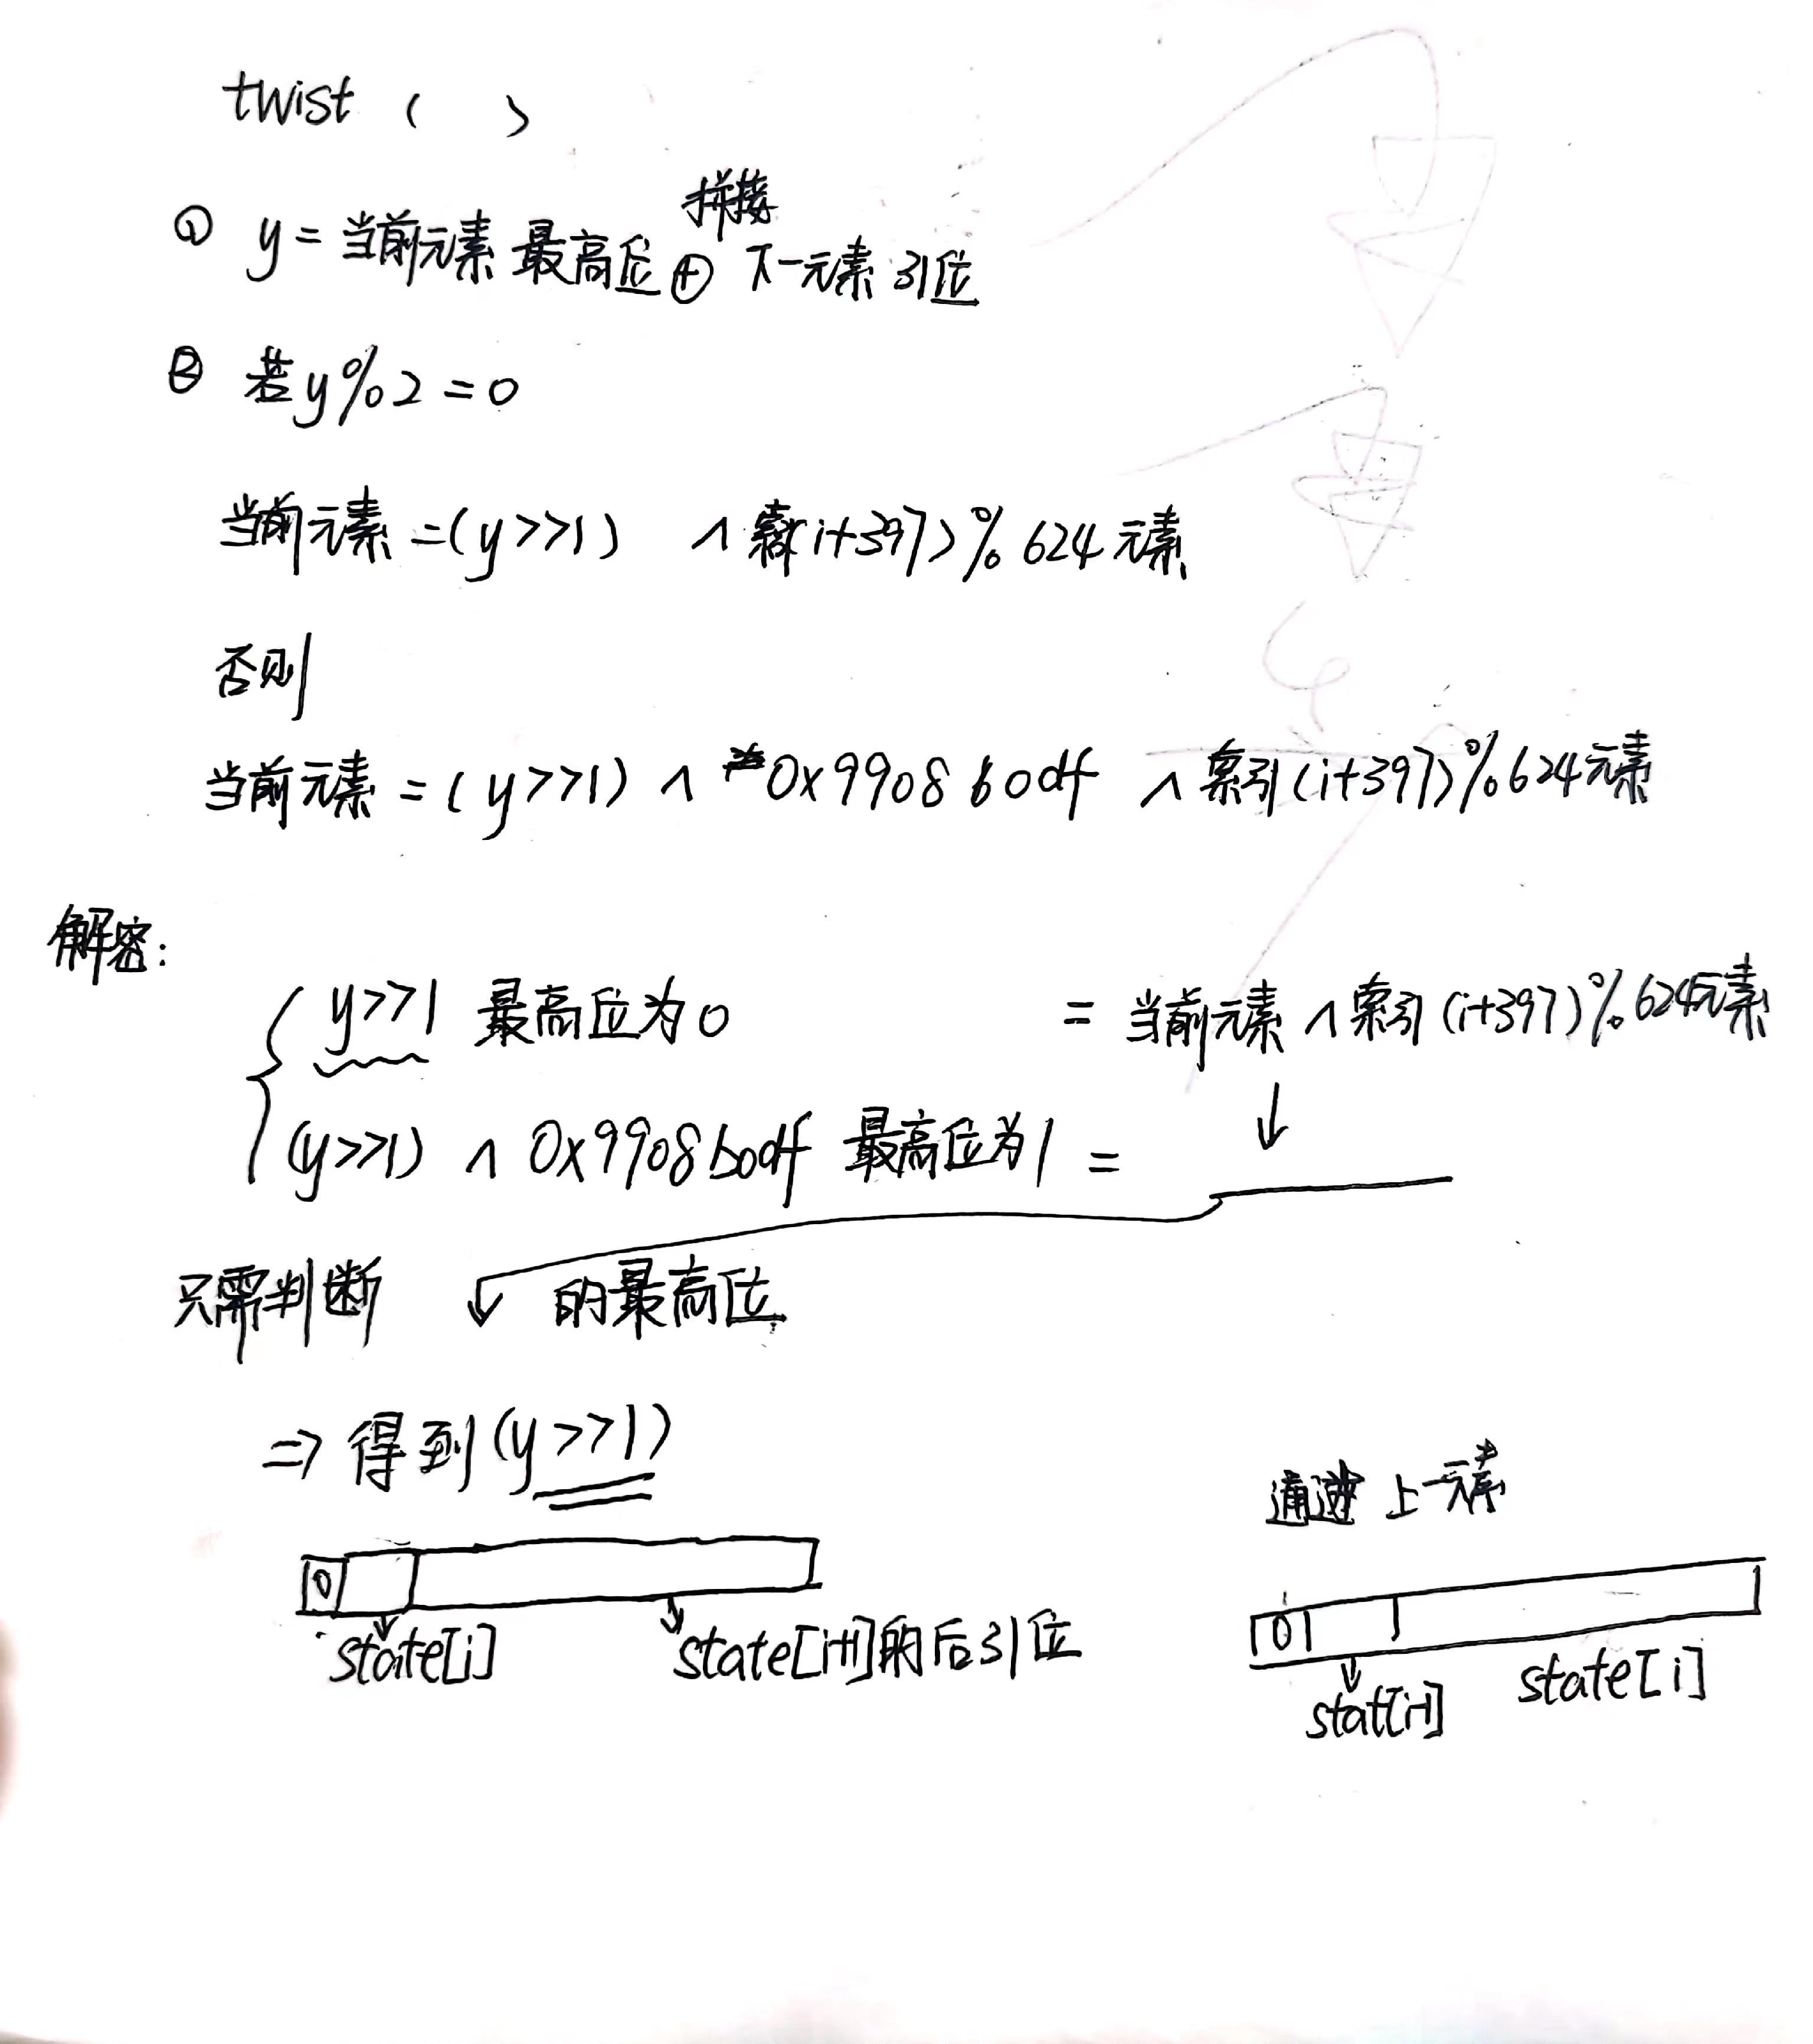 twist ( )
拼接
① y = 当前元素 最高位 ⊕ 下一元素 31位
② 若 y%2 = 0
当前元素 = (y>>1) ∧ 索引(i+397)%624元素
否则
当前元素 = (y>>1) ∧ 0x9908b0df ∧ 索引(i+397)%624元素
解密:
y>>1 最高位为0 = 当前元素 ∧ 索引(i+397)%624元素
(y>>1) ∧ 0x9908b0df 最高位为1 =
只需判断 的最高位
⇒ 得到(y>>1)
通过 上一元素
0
state[i] state[i+1]的后31位
0
stat[i-1] state[i]